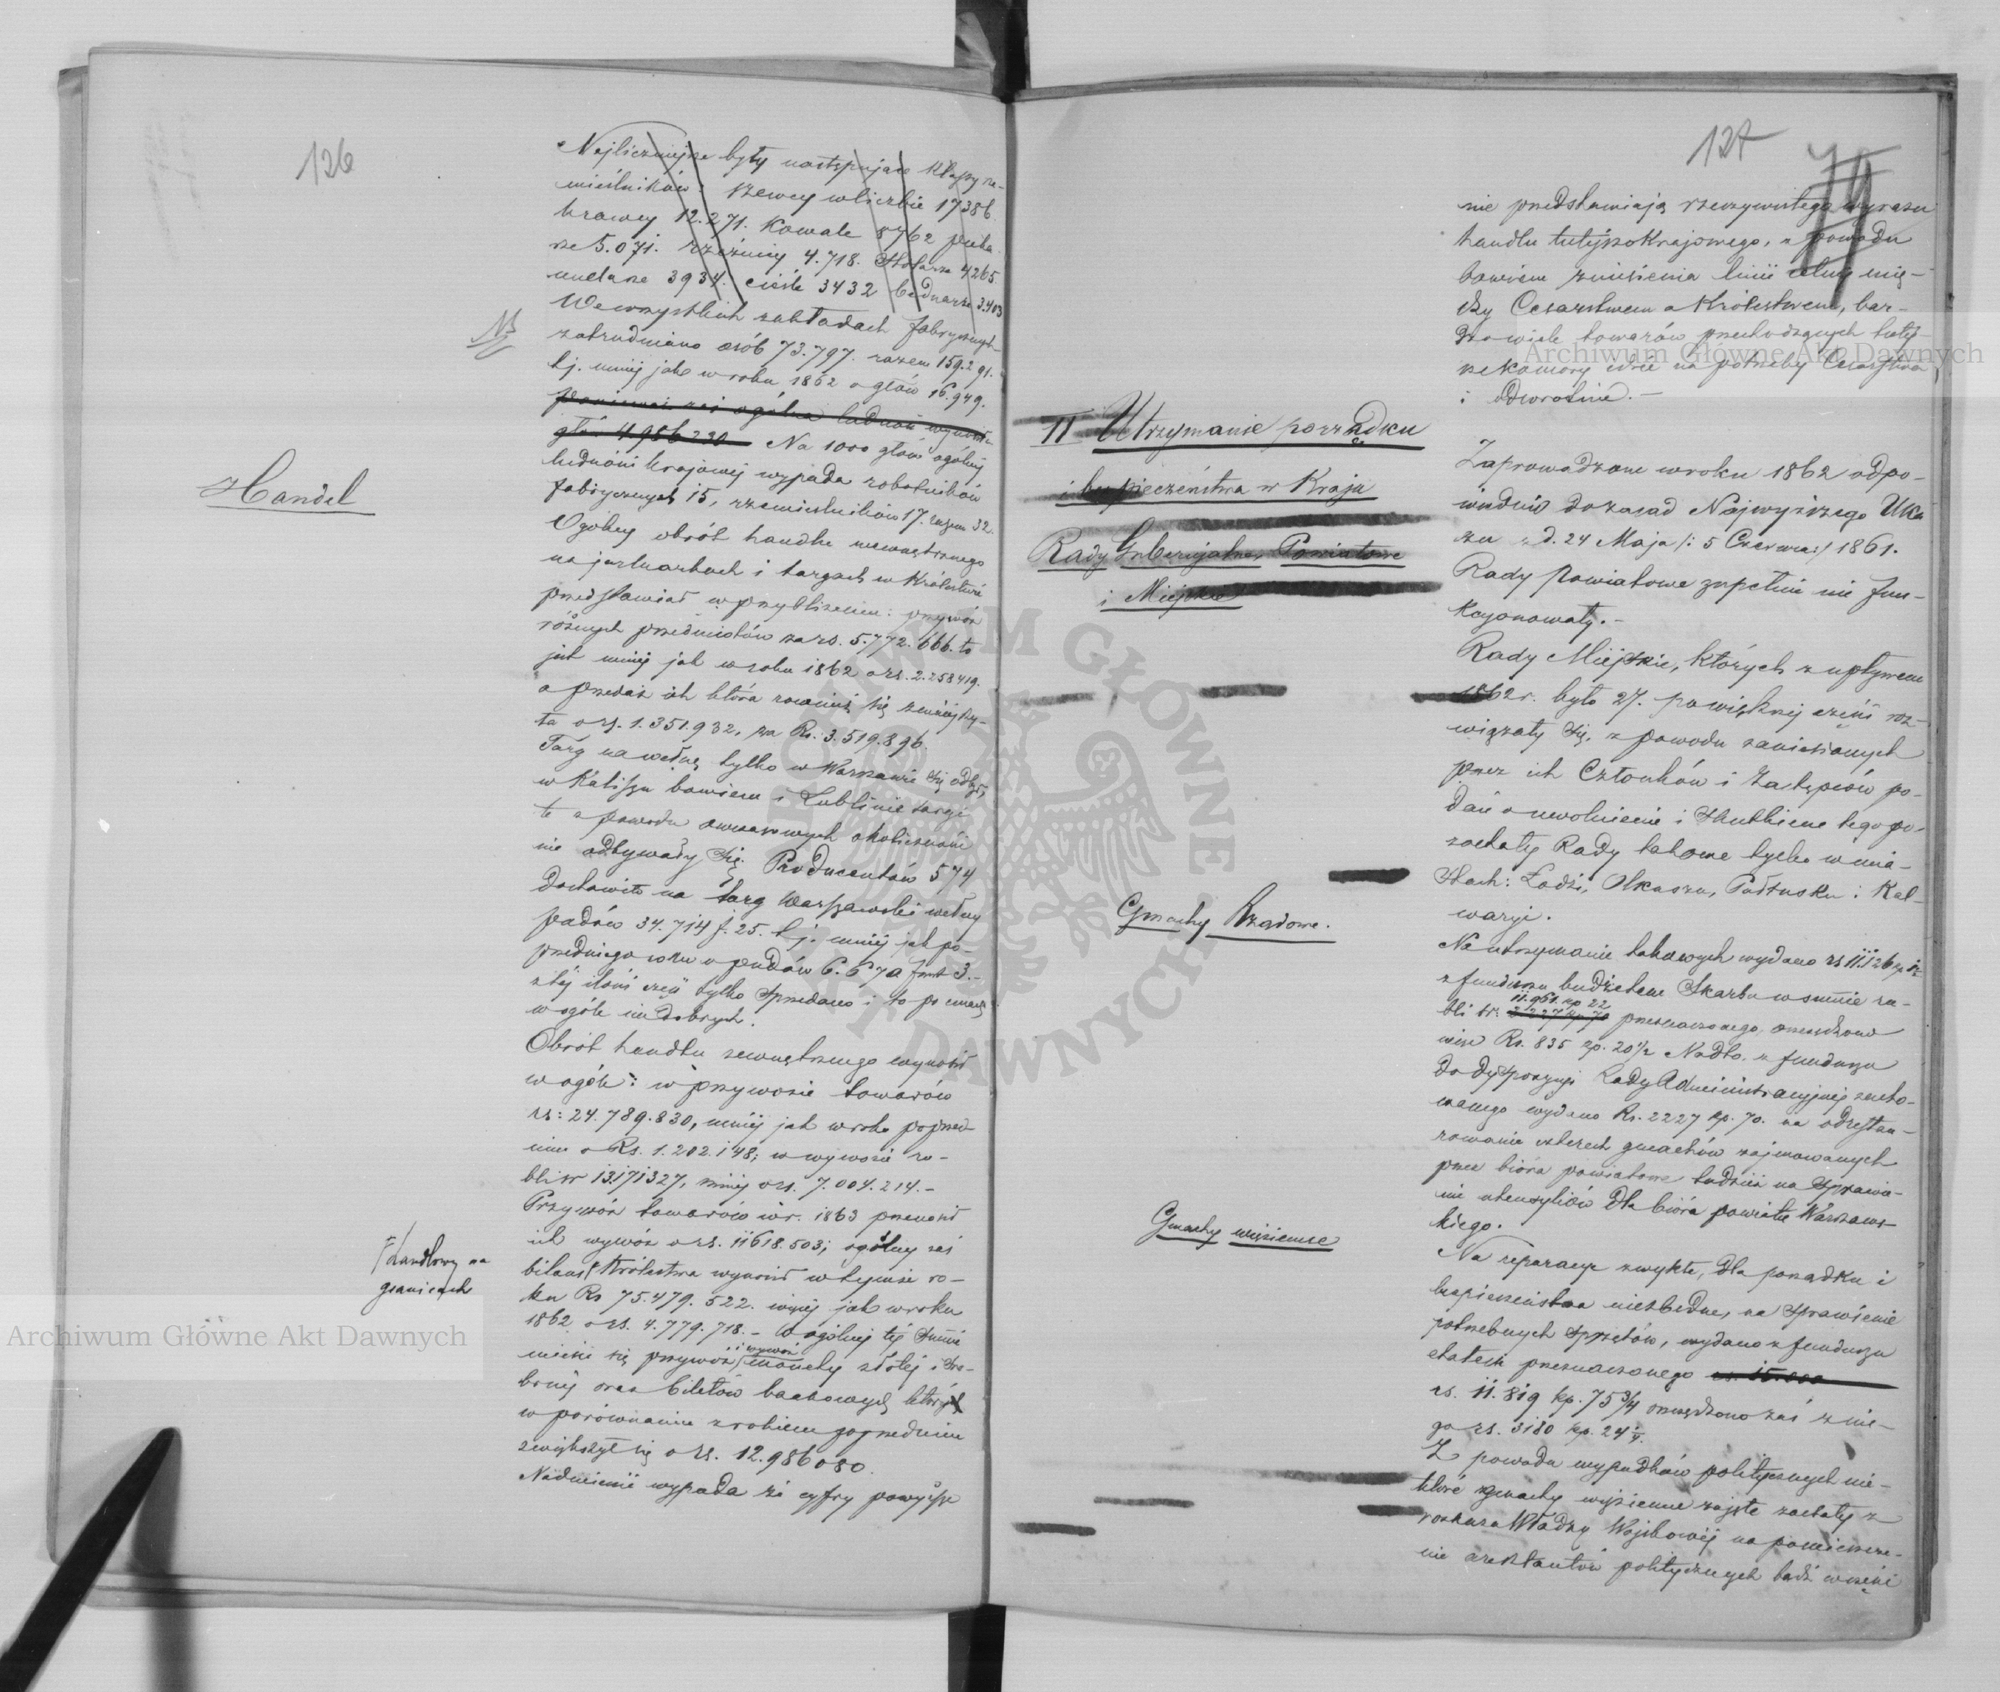 126
Najliczniejsze były następujące klassy rze-
mieślników: szewcy w liczbie 17386
krawcy 12.271. Kowale 8762 pieka
rze 5.071. rzeźnicy 4.718. Stolarze 4265
mularze 3934. cieśle 3432 bednarze 3.403
We wszystkich zakładach fabrycznych
NB
zatrudniano osób 73.797. razem 159.291.
tj. mniej jak w roku 1862 o głów 16.949.
ponieważ zaś ogólna ludność wynosi
głów 4.986.230 Na 1000 głów ogólnej
ludności krajowej wypada robotników
fabrycznych 15, rzemieślników 17. razem 32.
Handel
Ogólny obrót handlu wewnętrznego
na jarmarkach i targach w Królestwie
przedstawiał w przybliżeniu: przywóz
różnych przedmiotów za rs. 5.772.666. to
jest mniej jak w roku 1862 o rs. 2.258419.
a przedaż ich która również się zmniejszy-
ła o rs. 1.351.932, za Rs. 3.519.896.
Targ na wełnę tylko w Warszawie się odbył,
w Kaliszu bowiem i Lublinie targi
te z powodu okoliczności
nie odbywały się. Producentów 574
dostawiło na targ Warszawski wełny
pudów 34.714 f. 25. tj. mniej jak po-
przedniego roku o pudów 6.670 funt 3.-
z tej ilości część tylko sprzedano i to po cenach
w ogóle niedobrych.
Obrót handlu zewnętrznego wynosił
w ogóle: w przywozie towarów
rs: 24.789.830, mniej jak w roku poprzed-
nim o Rs. 1.202.148; w wywozie ru-
bli sr 13.171327, mniej o rs. 7.004.214.-
Przywóz towarów w r. 1863 przenosił
ich wywóz o rs. 11618.503; ogólny zaś
handlowy na
granicach
bilans Królestwa wynosił w tymże ro-
ku Rs 75.479.522. więcej jak w roku
1862 o rs. 4.779.718.- W ogólnej tej sumie
mieści się przywóz i wywóz monety złotej i sre-
brnej oraz biletów bankowych który
w porównaniu z rokiem poprzednim
zwiększył się o rs. 12.986080.
Nadmienić wypada że cyfry powyższe
127
nie przedstawiają rzeczywistego wyrazu
handlu tutejszokrajowego, z powodu
bowiem zniesienia linii celnej mię-
dzy Cesarstwem a Królestwem, bar-
dzo wiele towarów przechodzących tutej-
sze komory idzie na potrzeby Cesarstwa
i odwrotnie.-
II Utrzymanie porządku
i bezpieczeństwa w Kraju
Rady Gubernjalne, Powiatowe
i Miejskie
Zaprowadzone w roku 1862 odpo-
wiednio do zasad Najwyższego Uka
zu z d. 24 Maja /: 5 Czerwca :/ 1861.
Rady Powiatowe zupełnie nie fun-
kcyonowały.-
Rady Miejskie, których z upływem
1862 r. było 27. po większej części roz-
wiązały się, z powodu zaniesionych
przez ich Członków i Zastępców po-
dań o uwolnienie i skutkiem tego po-
zostały Rady takowe tylko w mia-
stach: Łodzi, Olkuszu, Pułtusku i Kal-
waryi.
Gmachy Rządowe.
Na utrzymanie takowych wydano rs 11.126 kp
z funduszu budżetem Skarbu w sumie ru-
bli sr: 11.961. kp 22 2227 kp 70 przeznaczonego, oszczędzono
więc Rs. 835 kp. 20½ Nadto. z funduszu
do dyspozycyi Rady Administracyjnej zacho-
wanego wydano Rs. 2227 kp. 70. na odrestau-
rowanie czterech gmachów zajmowanych
przez bióra powiatowe tudzież na sprawie-
nie utensyliów dla bióra powiatu Warszaws-
kiego.
Gmachy więzienne
Na reparacye zwykłe, dla porządku i
bezpieczeństwa niezbędne, na sprawienie
potrzebnych sprzętów, wydano z funduszu
etatem przeznaczonego rs. 15.000
rs. 11.819 kp. 75¾ oszczędzono zaś z nie-
go rs. 3180 kp. 24¼.
Z powodu wypadków politycznych nie-
które gmachy więzienne zajęte zostały z
rozkazu Władzy Wojskowej na pomieszcze-
nie aresztantów politycznych bądź w części
Archiwum Główne Akt Dawnych
Archiwum Główne Akt Dawnych
ARCHIWUM GŁÓWNE AKT DAWNYCH